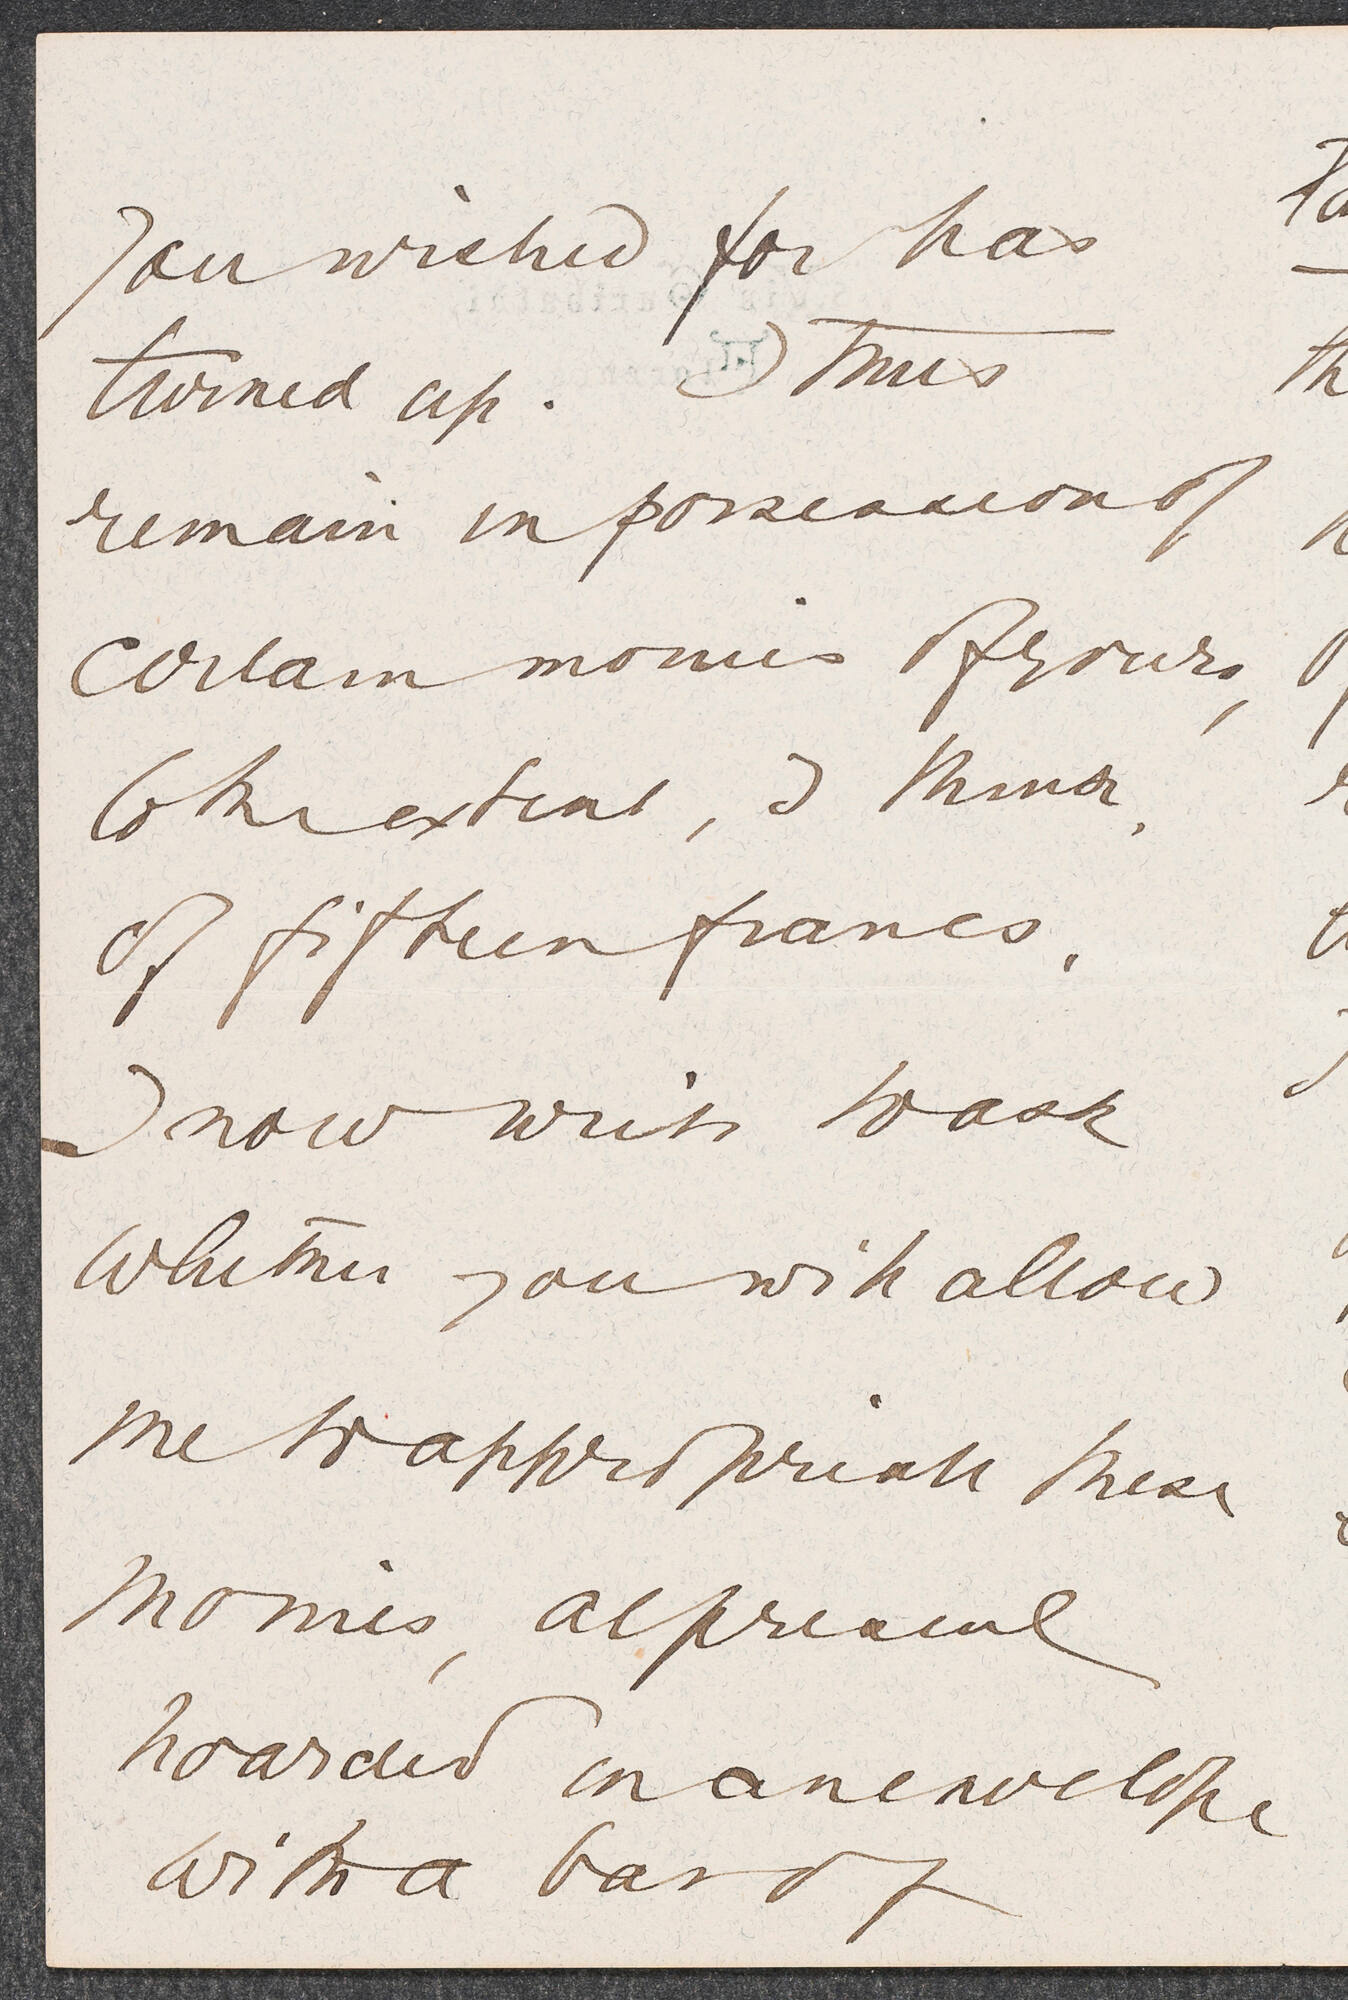 you wished for has
turned up. I thus
remain in possession of
certain monies of yours,
to the extent, I think,
of fifteen francs.
I now write to ask
whether you will allow
me to appropriate these
monies, at present
hoarded in an envelope
with a band of